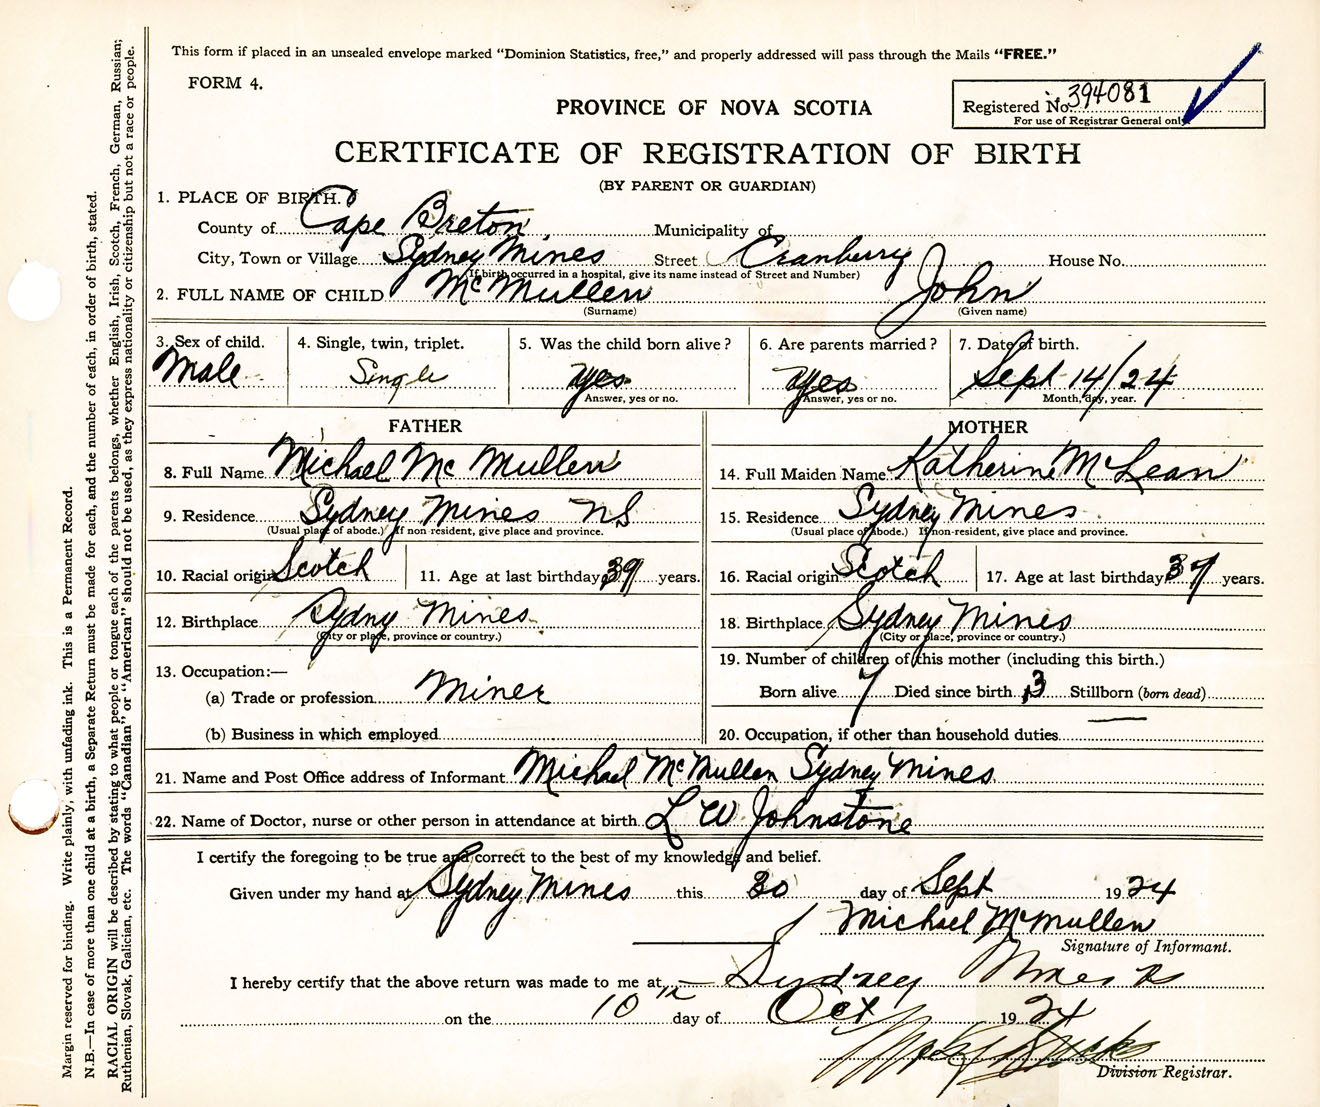 This form if placed in an unsealed envelope marked "Dominion Statistics, free," and properly addressed will pass through the Mails "FREE."
FORM 4.
Registered No. 394081
For use of Registrar General only
PROVINCE OF NOVA SCOTIA
CERTIFICATE OF REGISTRATION OF BIRTH
(BY PARENT OR GUARDIAN)
1. PLACE OF BIRTH.
County of Cape Breton Municipality of
City, Town or Village Sydney Mines Street Cranberry House No.
(If birth occurred in a hospital, give its name instead of Street and Number)
2. FULL NAME OF CHILD McMullen John
(Surname) (Given name)
3. Sex of child. 4. Single, twin, triplet. 5. Was the child born alive? 6. Are parents married? 7. Date of birth.
Male Single yes yes Sept 14/24
Answer, yes or no. Answer, yes or no. Month, day, year.
FATHER MOTHER
8. Full Name Michael Mc Mullen 14. Full Maiden Name Katherine McLean
9. Residence Sydney Mines NS 15. Residence Sydney Mines
(Usual place of abode.) If non-resident, give place and province. (Usual place of abode.) If non-resident, give place and province.
10. Racial origin Scotch 11. Age at last birthday 39 years. 16. Racial origin Scotch 17. Age at last birthday 37 years.
12. Birthplace Sydny Mines 18. Birthplace Sydney Mines
(City or place, province or country.) (City or place, province or country.)
13. Occupation:— 19. Number of children of this mother (including this birth.)
(a) Trade or profession Miner Born alive 7 Died since birth 3 Stillborn (born dead) —
(b) Business in which employed 20. Occupation, if other than household duties
21. Name and Post Office address of Informant Michael McMullen Sydney Mines
22. Name of Doctor, nurse or other person in attendance at birth L W Johnstone
I certify the foregoing to be true and correct to the best of my knowledge and belief.
Given under my hand at Sydney Mines this 30 day of Sept 1924
Michael McMullen
Signature of Informant.
I hereby certify that the above return was made to me at Sydney Mines
on the 10th day of Oct 1924
Division Registrar.
Margin reserved for binding. Write plainly, with unfading ink. This is a Permanent Record.
N.B.—In case of more than one child at a birth, a Separate Return must be made for each, and the number of each, in order of birth, stated.
RACIAL ORIGIN will be described by stating to what people or tongue each of the parents belongs, whether English, Irish, Scotch, French, German, Russian;
Ruthenian, Slovak, Galician, etc. The words "Canadian" or "American" should not be used, as they express nationality or citizenship but not a race or people.